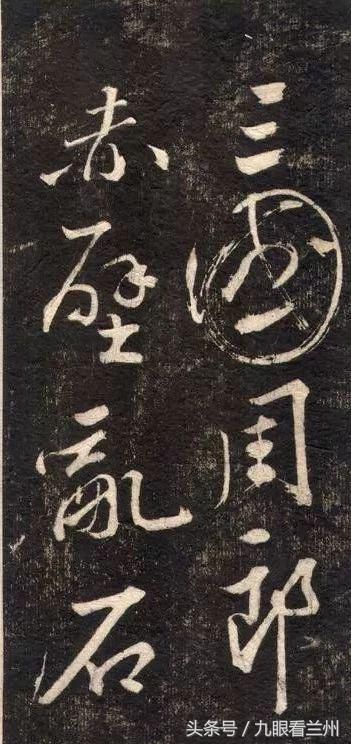 三國周郎
赤壁亂石
头条号/九眼看兰州